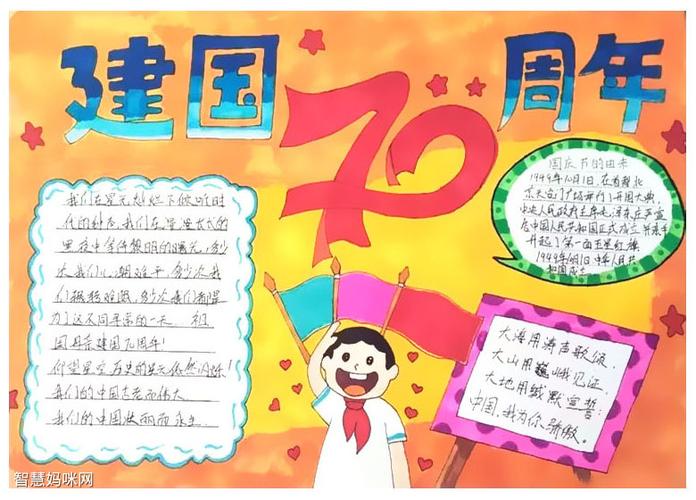 建国70周年
我们在星光灿烂下倾听时
代的钟声,我们在漫漫长长的
黑夜中等待黎明的曙光,多少
次我们心潮难平,多少次我
们
多少次我们都是
为了这不同寻常的一天 祖
国母亲建国70周年!
仰望星空历史的星光依然闪烁!
我们的中国古老而伟大
我们的中国壮丽而永生
国庆节的由来
1949年10月1日,在首都北
京天安门广场举行了开国大典
中央人民政府主席毛泽东庄严宣
告中国人民共和国正式成立并亲手
升起了第一面五星红旗
1949年10月1日中华人民共
和国成立
大海用涛声歌颂,
大山用巍峨见证,
大地用缄默宣誓:
中国,我为你骄傲。
智慧妈咪网